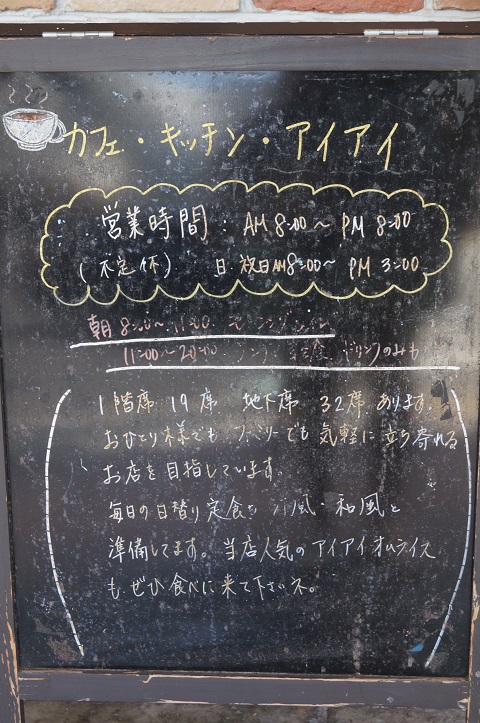 カフェ・キッチン・アイアイ
営業時間：AM 8:00〜 PM 8:00
(不定休) 日.祝日AM8:00〜 PM 3:00
朝 8:00〜11:00
11:00〜20:00 ドリンクのみも
1階席 19席 地下席 32席 あります.
おひとり様でも ファミリーでも 気軽に立ち寄れる
お店を目指しています。
毎日の日替り定食も 洋風・和風と
準備してます。当店人気のアイアイオムライス
も ぜひ食べに来て下さいネ。